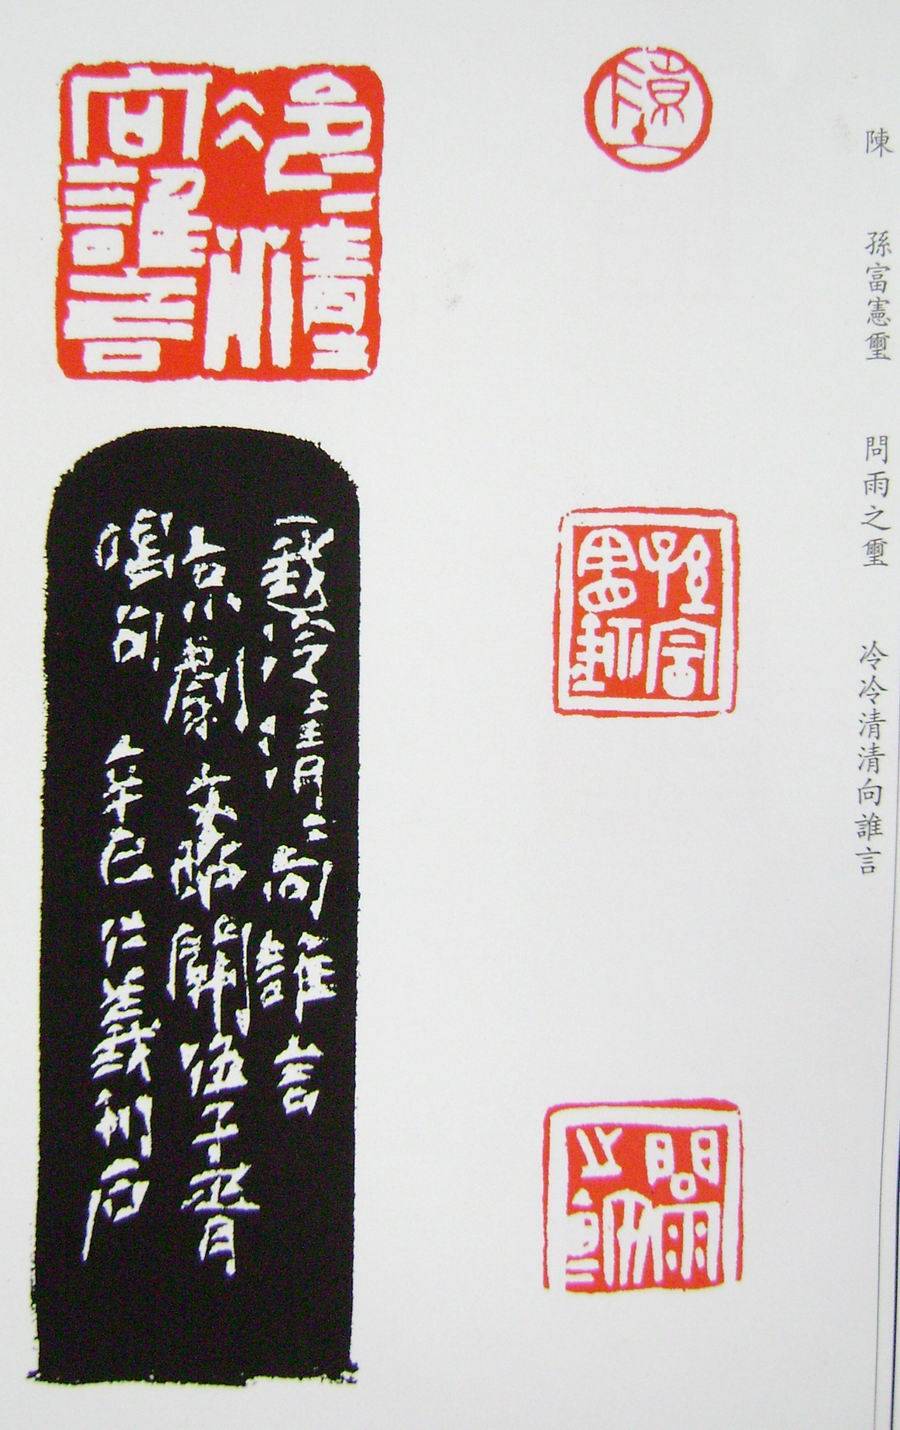 陳　孫富憲璽　問雨之璽　冷冷清清向誰言
陳
孫富
憲璽
問雨
之璽
冷清
向誰言
我冷清向誰言
京劇文昭關伍子胥
唱句 辛巳 義刻石